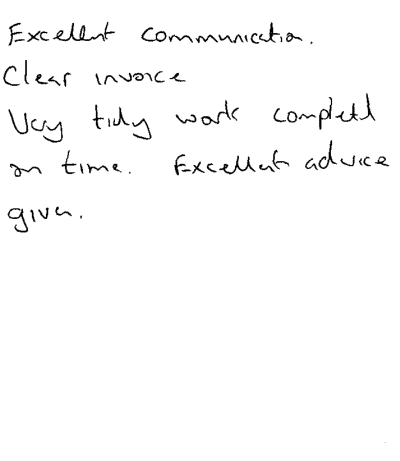 Excellent communication.
Clear invoice
Very tidy work completed
on time. Excellent advice
given.